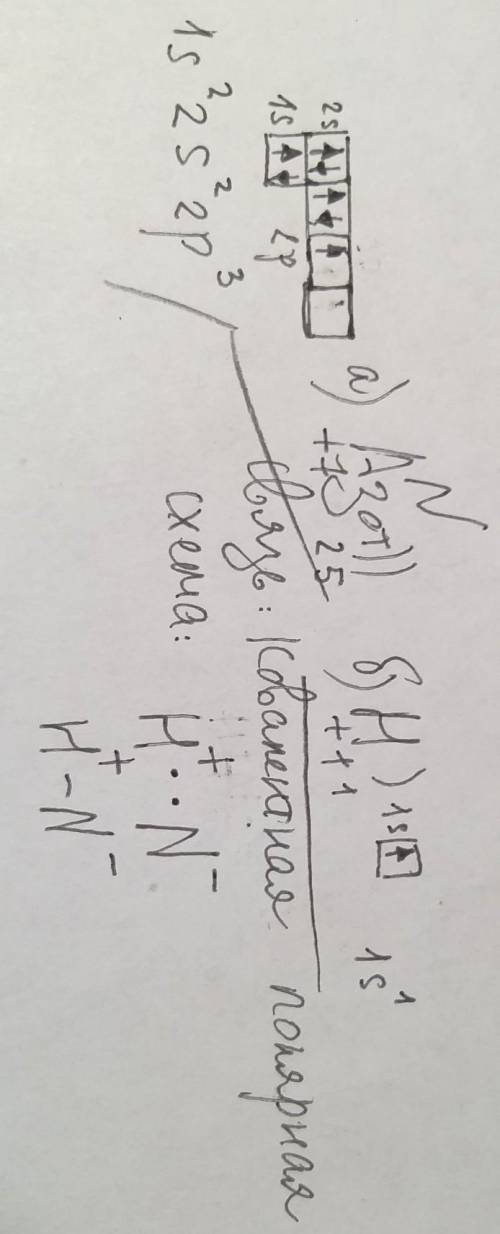 а) Азот )) N
+7 2 5
2s
1s 2p
1s² 2s² 2p³
б) H ) 1s 1s¹
+1 1
Связь: Ковалентная полярная
схема: H⁺ ·· N⁻
H⁺ – N⁻